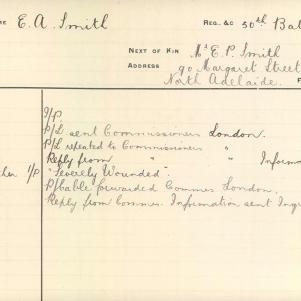 E. A. Smith
REG. &C 50th Bat
NEXT OF KIN Mr E. P. Smith
ADDRESS 90 Margaret Street
North Adelaide.
I/P.
P/L sent Commissioners London.
P/L repeated to Commissioners "
Reply from " " Informa
I/P "Severely Wounded".
P/Cable forwarded Commrs London.
Reply from Commrs. Information sent Inqu